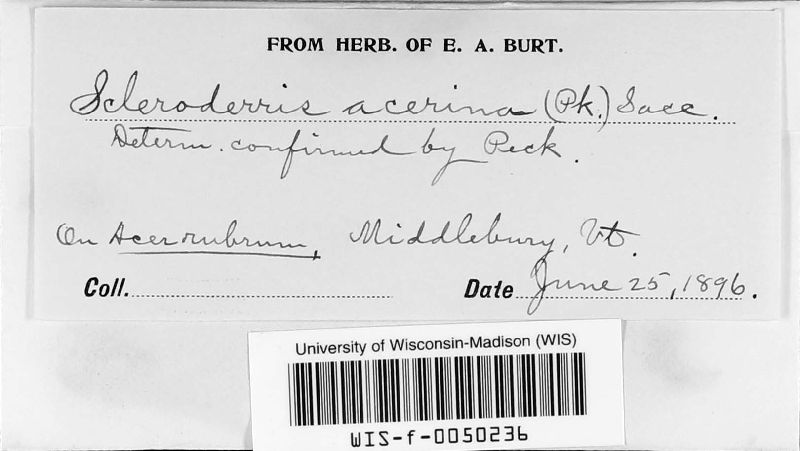 FROM HERB. OF E. A. BURT.
Scleroderris acerina (Pk.) Sacc.
Determ. confirmed by Peck.
On Acer rubrum, Middlebury, Vt.
Coll. Date June 25, 1896.
University of Wisconsin-Madison (WIS)
WIS-f-0050236